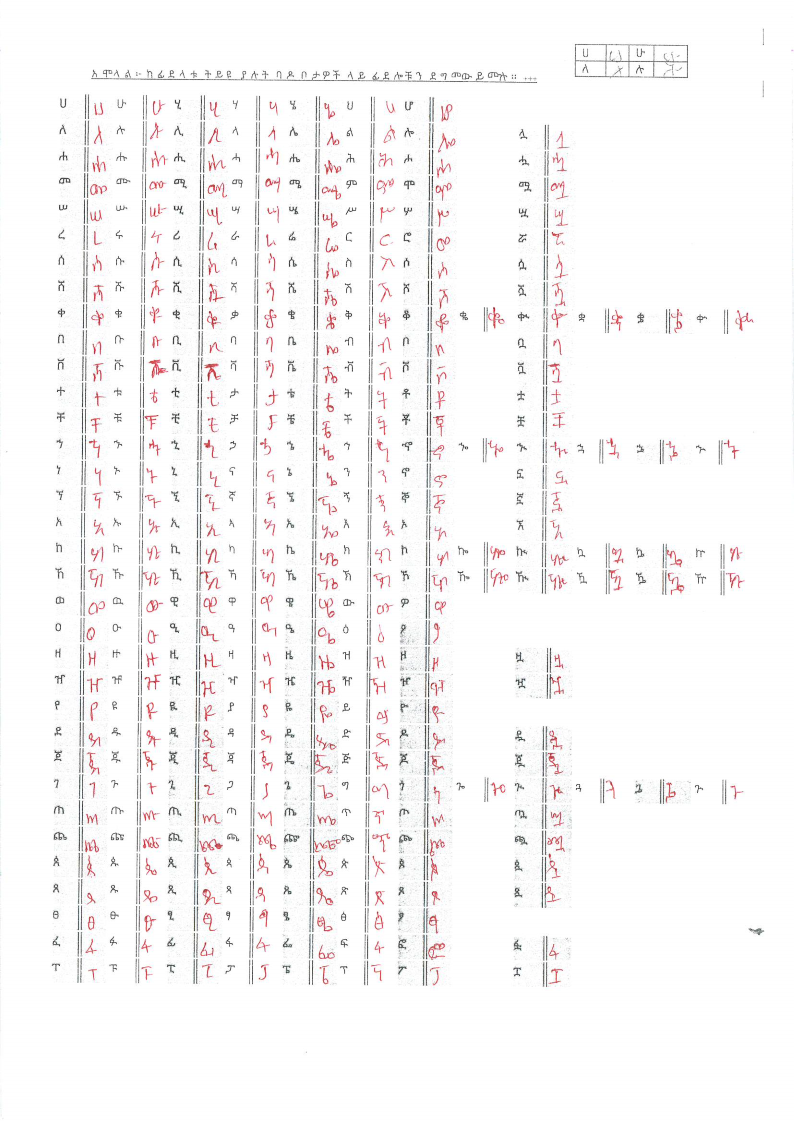 ሀ ሀ ሁ ሁ
ለ ለ ሉ ሉ
አሞላል፡- ከፊደላቱ ትይዩ ያሉት ባዶ ቦታዎች ላይ ፊደሎቹን ደግመው ይሙሉ። ...
ሀ ሀ ሁ ሁ ሂ ሂ ሃ ሃ ሄ ሄ ህ ህ ሆ ሆ
ለ ለ ሉ ሉ ሊ ሊ ላ ላ ሌ ሌ ል ል ሎ ሎ ሏ ሏ
ሐ ሐ ሑ ሑ ሒ ሒ ሓ ሓ ሔ ሔ ሕ ሕ ሖ ሖ ሗ ሗ
መ መ ሙ ሙ ሚ ሚ ማ ማ ሜ ሜ ም ም ሞ ሞ ሟ ሟ
ሠ ሠ ሡ ሡ ሢ ሢ ሣ ሣ ሤ ሤ ሥ ሥ ሦ ሦ ሧ ሧ
ረ ረ ሩ ሩ ሪ ሪ ራ ራ ሬ ሬ ር ር ሮ ሮ ሯ ሯ
ሰ ሰ ሱ ሱ ሲ ሲ ሳ ሳ ሴ ሴ ስ ስ ሶ ሶ ሷ ሷ
ሸ ሸ ሹ ሹ ሺ ሺ ሻ ሻ ሼ ሼ ሽ ሽ ሾ ሾ ሿ ሿ
ቀ ቀ ቁ ቁ ቂ ቂ ቃ ቃ ቄ ቄ ቅ ቅ ቆ ቆ ቈ ቈ ቊ ቊ ቋ ቋ ቌ ቌ ቍ ቍ
በ በ ቡ ቡ ቢ ቢ ባ ባ ቤ ቤ ብ ብ ቦ ቦ ቧ ቧ
ቨ ቨ ቩ ቩ ቪ ቪ ቫ ቫ ቬ ቬ ቭ ቭ ቮ ቮ ቯ ቯ
ተ ተ ቱ ቱ ቲ ቲ ታ ታ ቴ ቴ ት ት ቶ ቶ ቷ ቷ
ቸ ቸ ቹ ቹ ቺ ቺ ቻ ቻ ቼ ቼ ች ች ቾ ቾ ቿ ቿ
ኀ ኀ ኁ ኁ ኂ ኂ ኃ ኃ ኄ ኄ ኅ ኅ ኆ ኆ ኈ ኈ ኊ ኊ ኋ ኋ ኌ ኌ ኍ ኍ
ነ ነ ኑ ኑ ኒ ኒ ና ና ኔ ኔ ን ን ኖ ኖ ኗ ኗ
ኘ ኘ ኙ ኙ ኚ ኚ ኛ ኛ ኜ ኜ ኝ ኝ ኞ ኞ ኟ ኟ
አ አ ኡ ኡ ኢ ኢ ኣ ኣ ኤ ኤ እ እ ኦ ኦ ኧ ኧ
ከ ከ ኩ ኩ ኪ ኪ ካ ካ ኬ ኬ ክ ክ ኮ ኮ ኰ ኰ ኲ ኲ ኳ ኳ ኴ ኴ ኵ ኵ
ኸ ኸ ኹ ኹ ኺ ኺ ኻ ኻ ኼ ኼ ኽ ኽ ኾ ኾ ዀ ዀ ዂ ዂ ዃ ዃ ዄ ዄ ዅ ዅ
ወ ወ ዉ ዉ ዊ ዊ ዋ ዋ ዌ ዌ ው ው ዎ ዎ
ዐ ዐ ዑ ዑ ዒ ዒ ዓ ዓ ዔ ዔ ዕ ዕ ዖ ዖ
ዘ ዘ ዙ ዙ ዚ ዚ ዛ ዛ ዜ ዜ ዝ ዝ ዞ ዞ ዟ ዟ
ዠ ዠ ዡ ዡ ዢ ዢ ዣ ዣ ዤ ዤ ዥ ዥ ዦ ዦ ዧ ዧ
የ የ ዩ ዩ ዪ ዪ ያ ያ ዬ ዬ ይ ይ ዮ ዮ
ደ ደ ዱ ዱ ዲ ዲ ዳ ዳ ዴ ዴ ድ ድ ዶ ዶ ዷ ዷ
ጀ ጀ ጁ ጁ ጂ ጂ ጃ ጃ ጄ ጄ ጅ ጅ ጆ ጆ ጇ ጇ
ገ ገ ጉ ጉ ጊ ጊ ጋ ጋ ጌ ጌ ግ ግ ጎ ጎ ጐ ጐ ጒ ጒ ጓ ጓ ጔ ጔ ጕ ጕ
ጠ ጠ ጡ ጡ ጢ ጢ ጣ ጣ ጤ ጤ ጥ ጥ ጦ ጦ ጧ ጧ
ጨ ጨ ጩ ጩ ጪ ጪ ጫ ጫ ጬ ጬ ጭ ጭ ጮ ጮ ጯ ጯ
ጰ ጰ ጱ ጱ ጲ ጲ ጳ ጳ ጴ ጴ ጵ ጵ ጶ ጶ ጷ ጷ
ጸ ጸ ጹ ጹ ጺ ጺ ጻ ጻ ጼ ጼ ጽ ጽ ጾ ጾ ጿ ጿ
ፀ ፀ ፁ ፁ ፂ ፂ ፃ ፃ ፄ ፄ ፅ ፅ ፆ ፆ
ፈ ፈ ፉ ፉ ፊ ፊ ፋ ፋ ፌ ፌ ፍ ፍ ፎ ፎ ፏ ፏ
ፐ ፐ ፑ ፑ ፒ ፒ ፓ ፓ ፔ ፔ ፕ ፕ ፖ ፖ ፗ ፗ